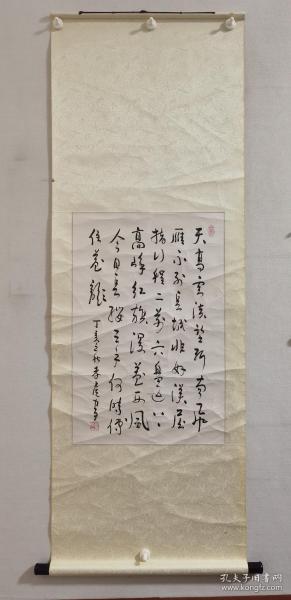 天高云淡望断南飞
雁不到长城非好汉屈
指行程二万六盘山上
高峰红旗漫卷西风
今日长缨在手何时缚
住苍龙
丁亥之秋李
孔夫子旧书网